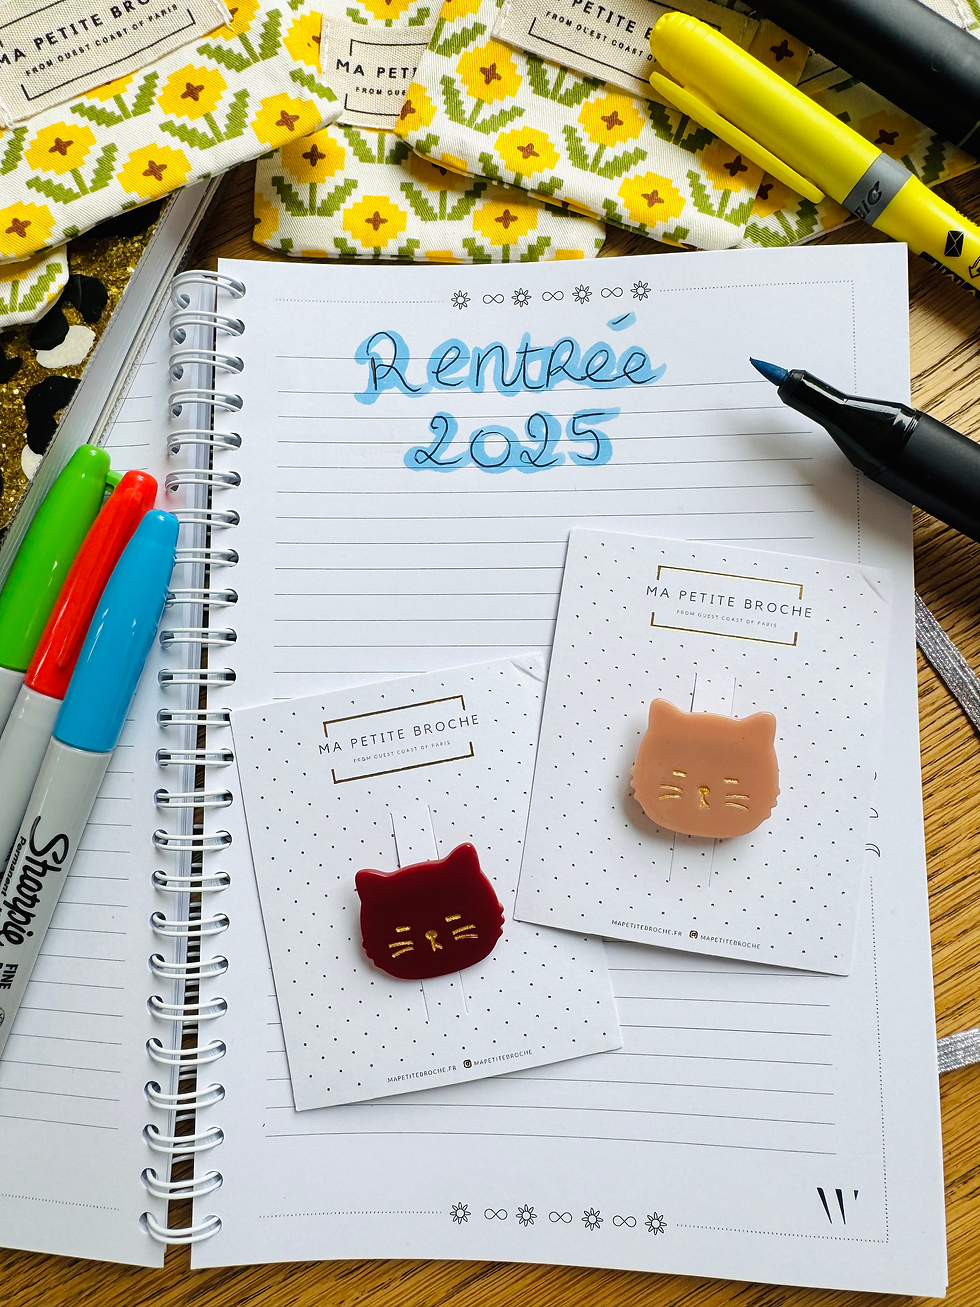 MA PETITE BRO
FROM OUEST COAST OF PARIS
MA PETI
FROM OUE
PETITE B
FROM OUEST COAST OF PARIS
BIC
Rentrée
2025
MA PETITE BROCHE
FROM OUEST COAST OF PARIS
MAPETITEBROCHE.FR MAPETITEBROCHE
MA PETITE BROCHE
FROM OUEST COAST OF PARIS
MAPETITEBROCHE.FR MAPETITEBROCHE
Sharpie
Permanent
FINE
W